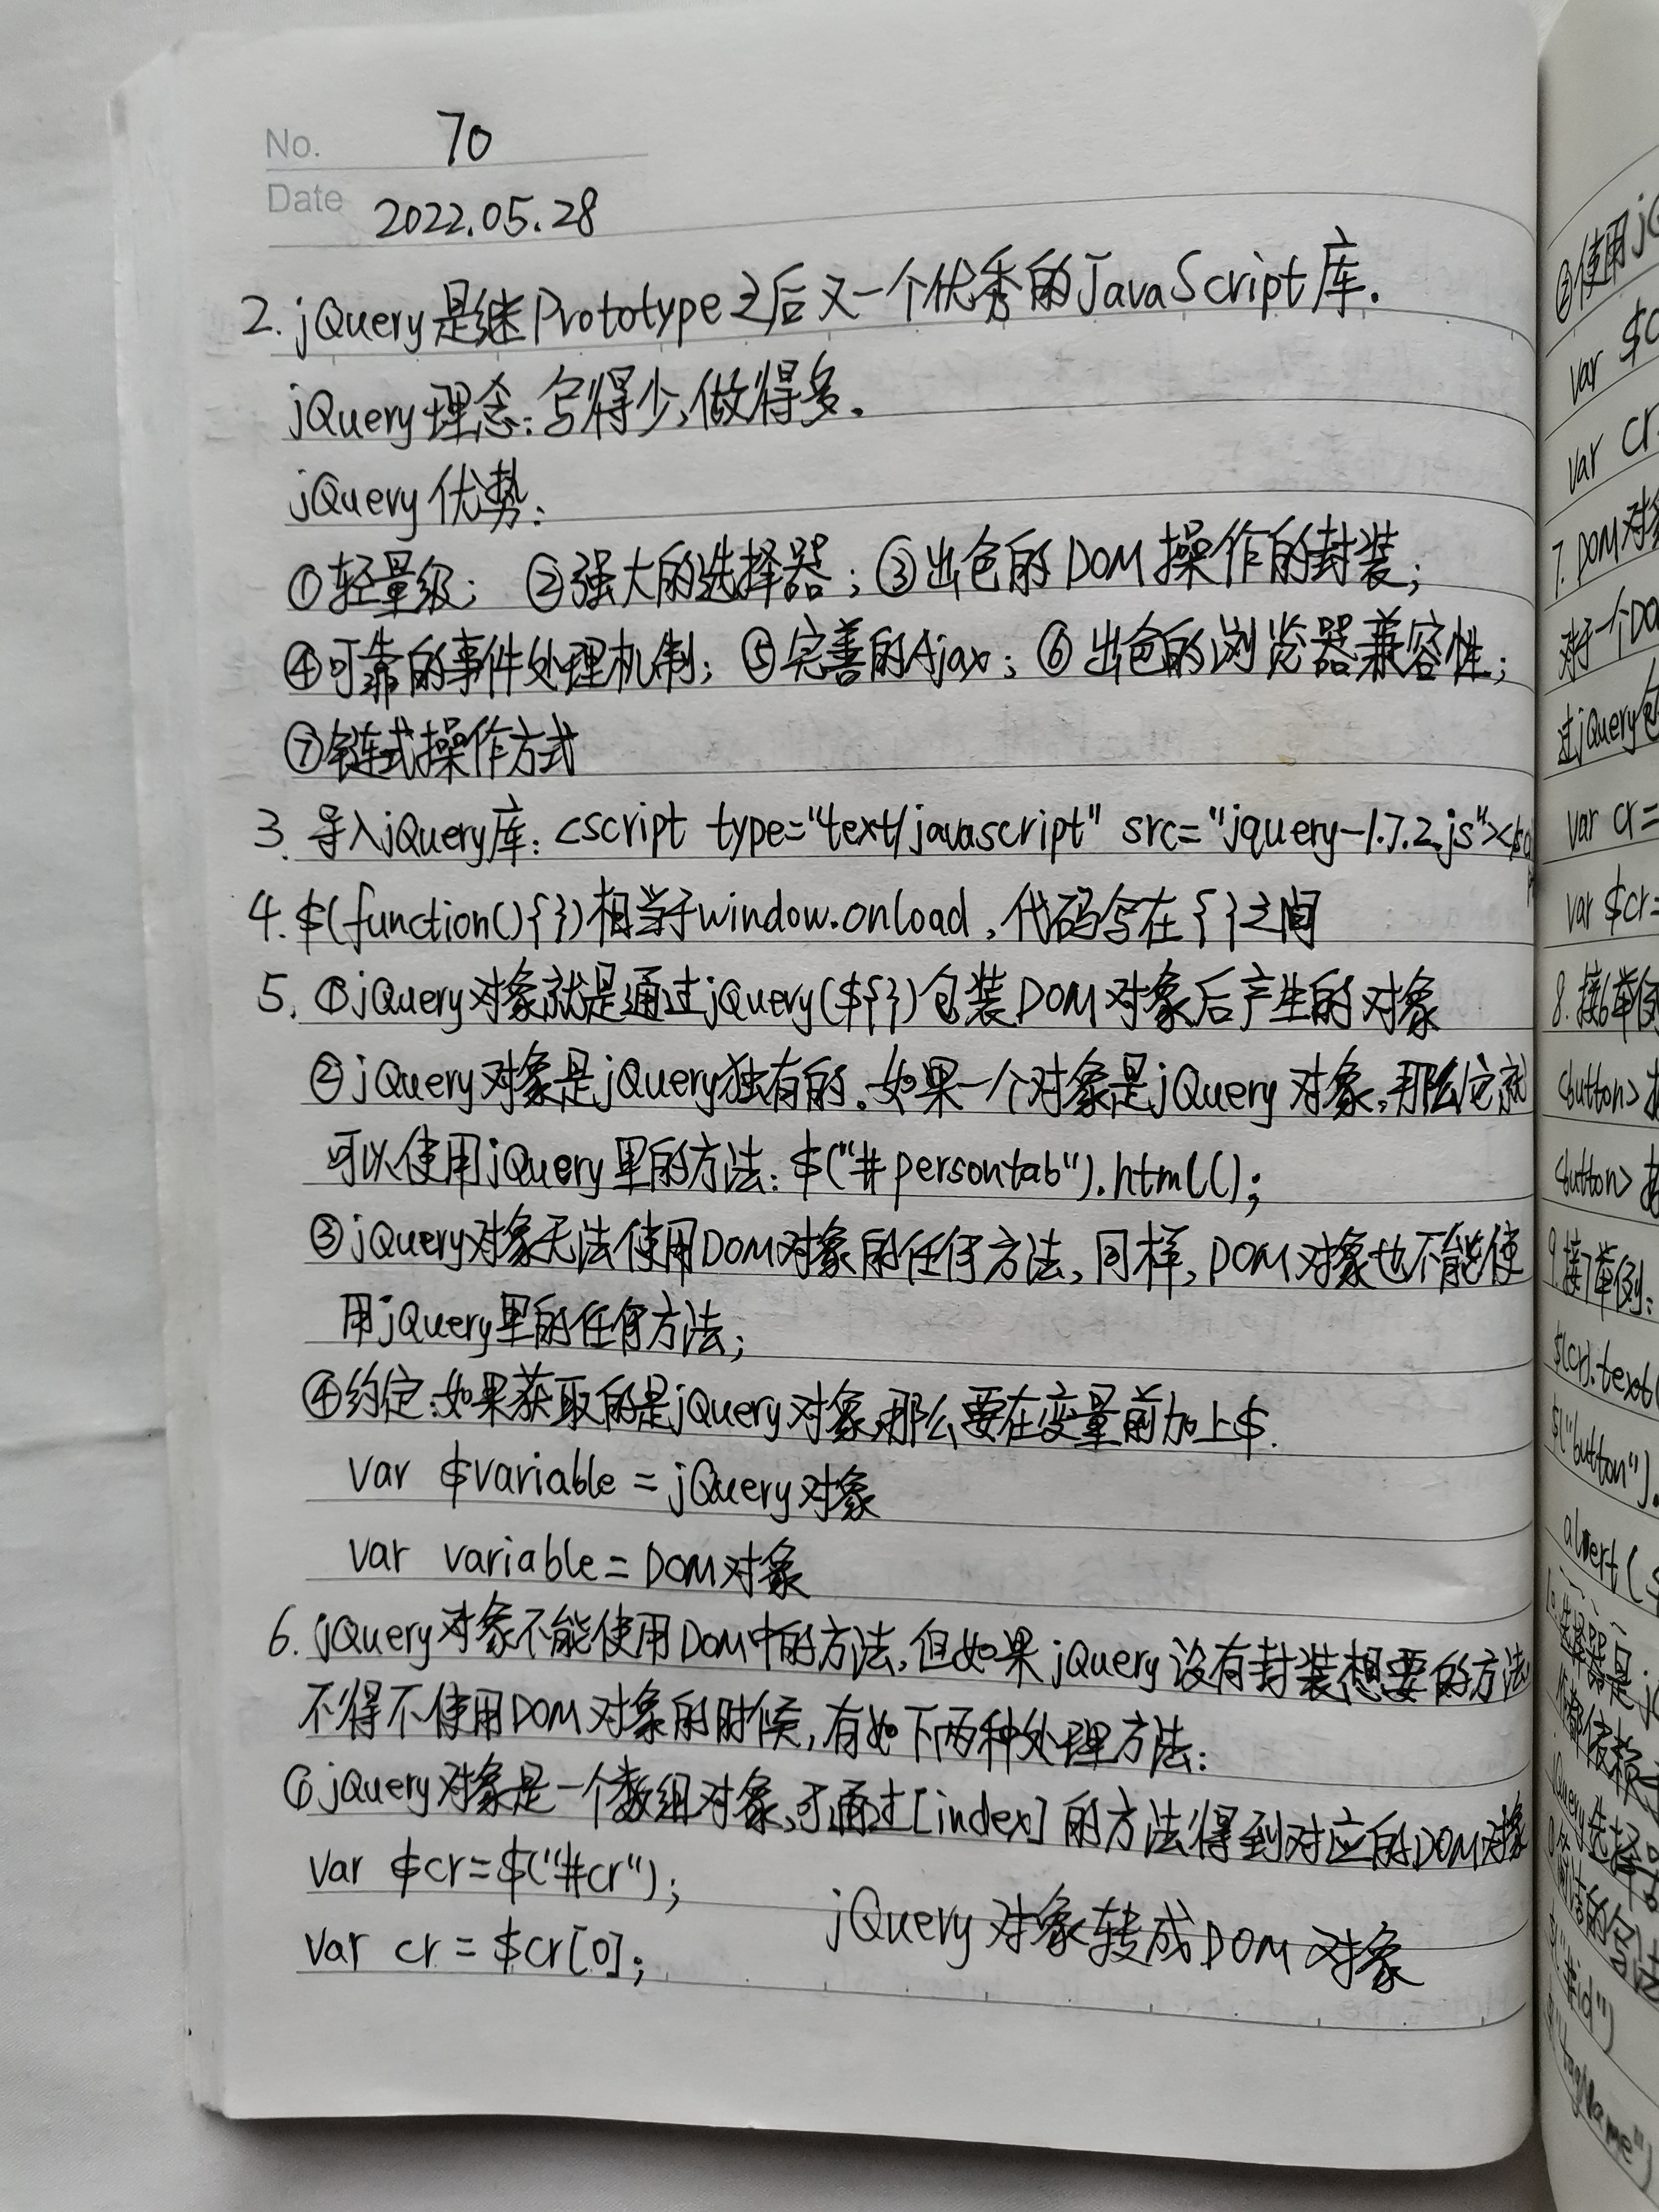 No. 70
Date 2022.05.28
2. jQuery是继Prototype之后又一个优秀的JavaScript库.
jQuery理念:写得少,做得多.
jQuery优势:
①轻量级; ②强大的选择器; ③出色的DOM操作的封装;
④可靠的事件处理机制; ⑤完善的Ajax; ⑥出色的浏览器兼容性;
⑦链式操作方式
3. 导入jQuery库: <script type="text/javascript" src="jquery-1.7.2.js"></
4. $(function(){})相当于window.onload,代码写在{}之间
5. ①jQuery对象就是通过jQuery(${})包装DOM对象后产生的对象
②jQuery对象是jQuery独有的.如果一个对象是jQuery对象,那么它就
可以使用jQuery里的方法: $("#persontab").html();
③jQuery对象无法使用DOM对象的任何方法,同样,DOM对象也不能使
用jQuery里的任何方法;
④约定:如果获取的是jQuery对象,那么要在变量前加上$.
var $variable = jQuery对象
var variable = DOM对象
6. jQuery对象不能使用DOM中的方法,但如果jQuery没有封装想要的方法
不得不使用DOM对象的时候,有如下两种处理方法:
①jQuery对象是一个数组对象,可通过[index]的方法得到对应的DOM对象
var $cr=$("#cr");
var cr = $cr[0];
jQuery对象转成DOM对象
②使用jQ
var $c
var cr
7. DOM对象
对于一个DO
过jQuery包
var cr=
var $cr=
8. 接6举例
<button>
<button>
9. 接7举例:
$(cr).text(
$("button").
alert(
10. 选择器是jQ
都依赖
jQuery选择器
$("#id")
$("tagName")